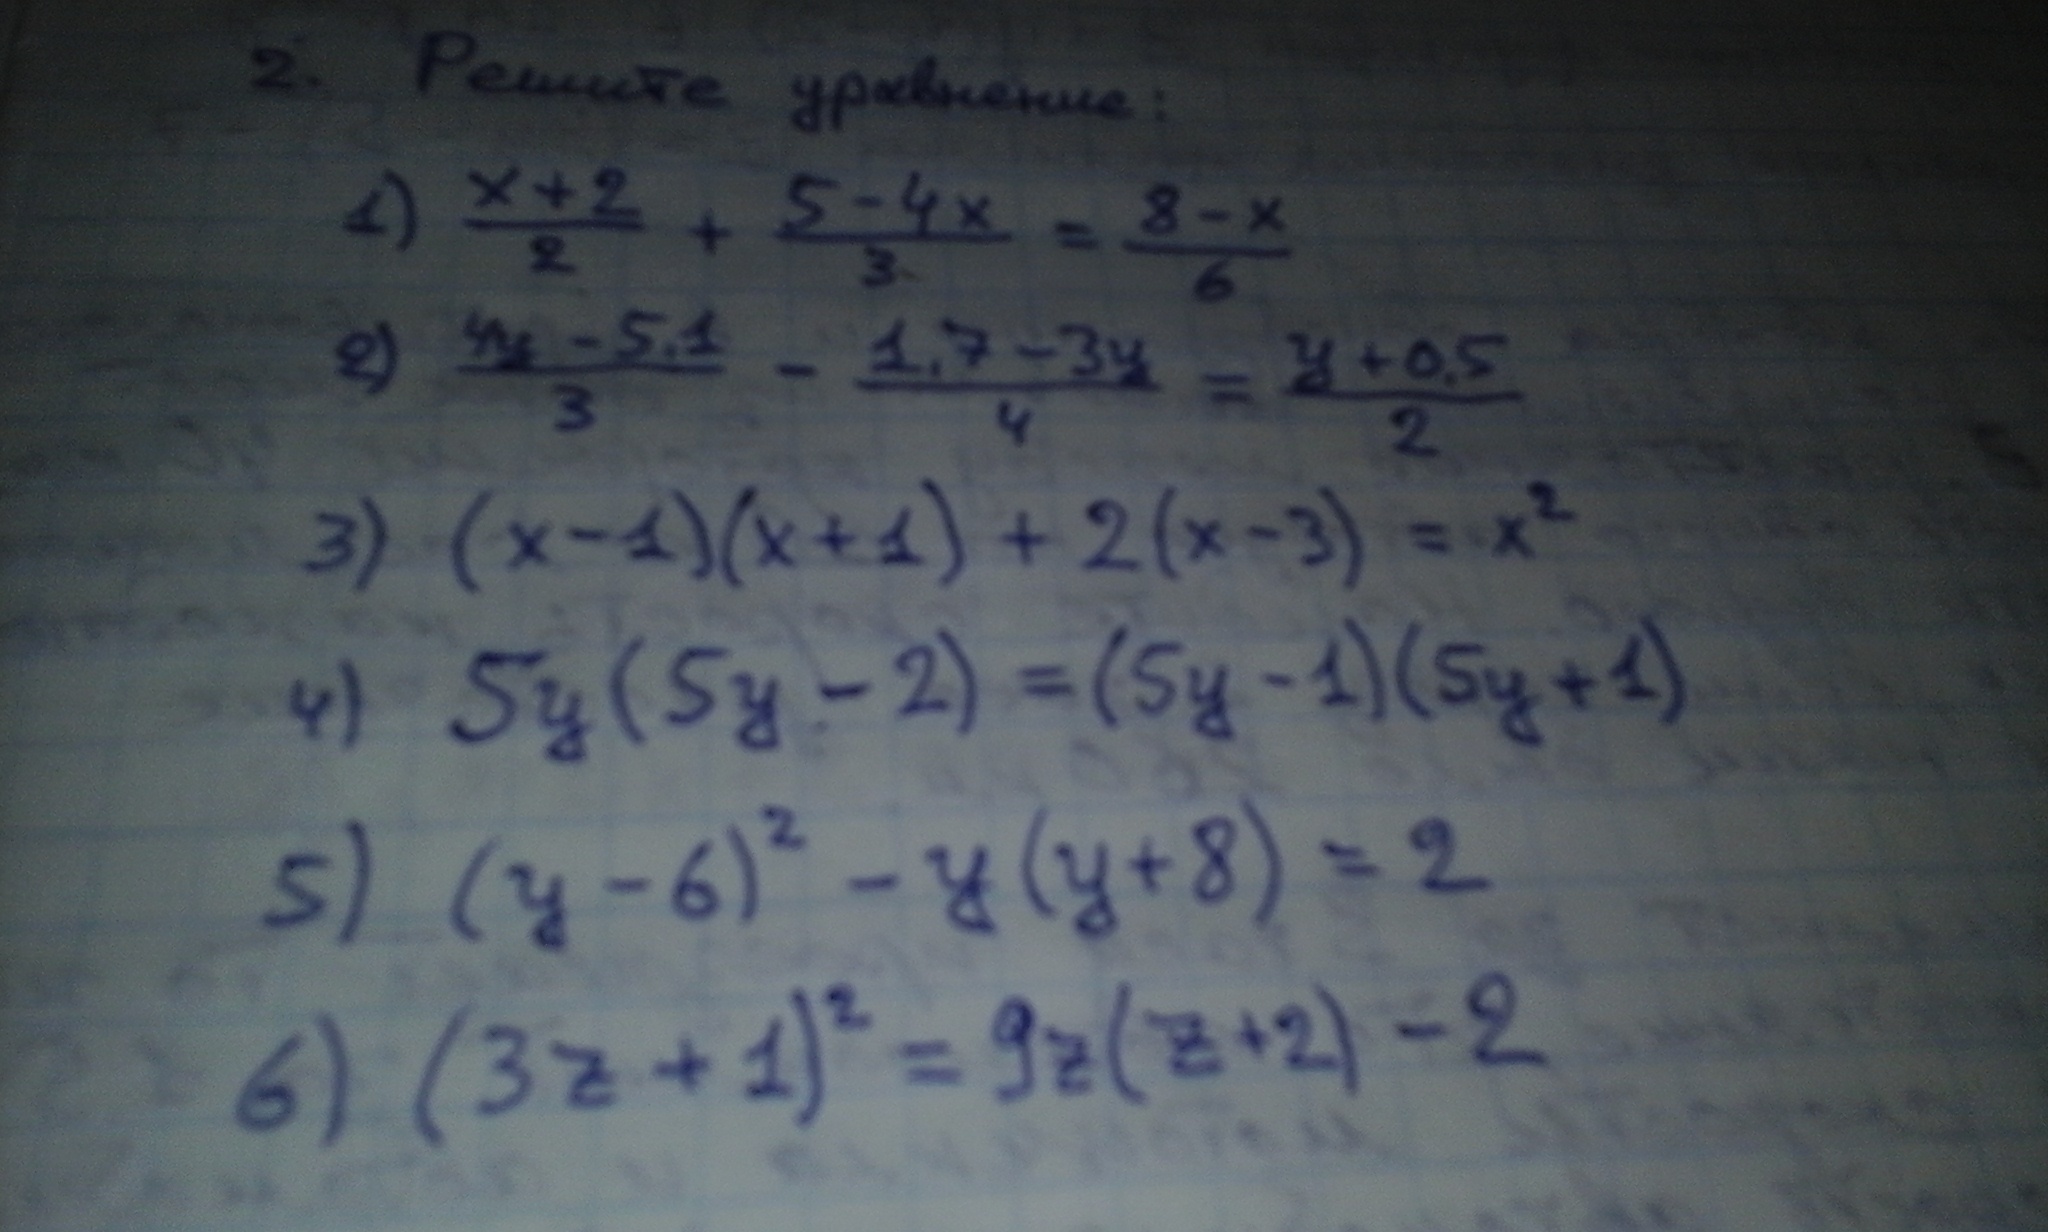 2. Решите уравнение:
1) (x+2)/2 + (5-4x)/3 = (8-x)/6
2) (4y-5.1)/3 - (1.7-3y)/4 = (y+0.5)/2
3) (x-1)(x+1) + 2(x-3) = x²
4) 5y(5y-2) = (5y-1)(5y+1)
5) (y-6)² - y(y+8) = 2
6) (3z+1)² = 9z(z+2) - 2